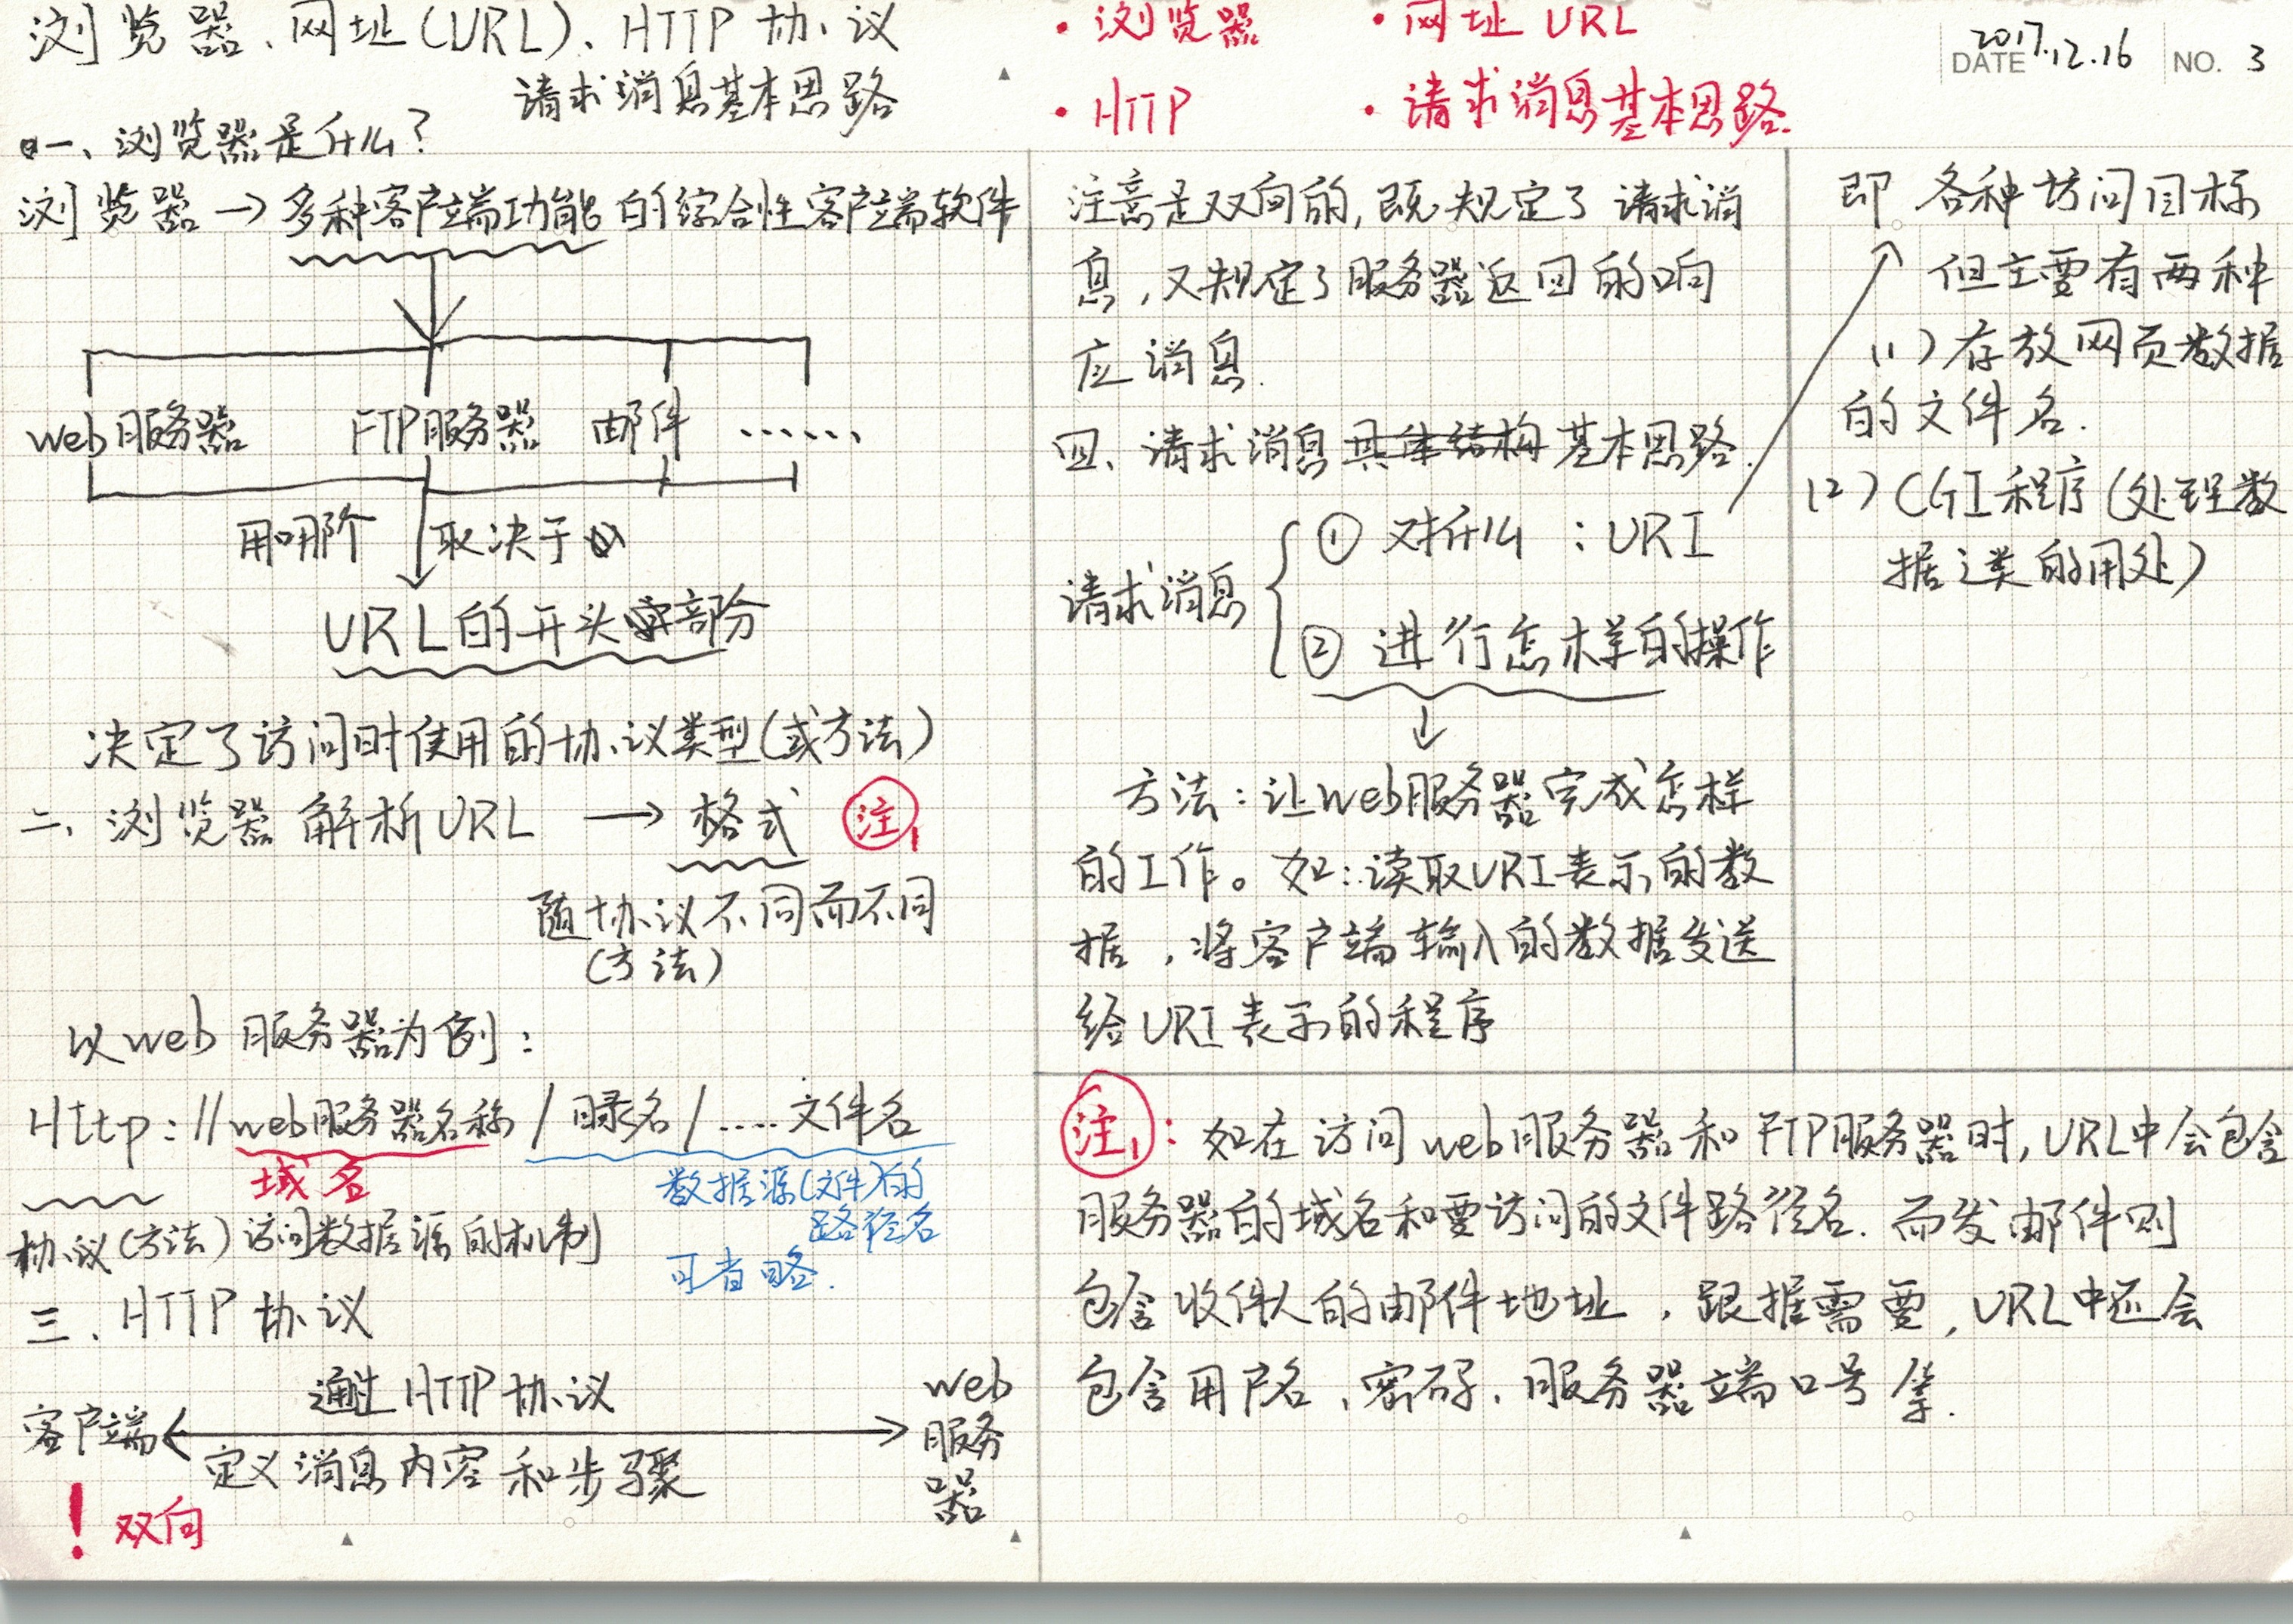 浏览器、网址(URL)、HTTP协议
请求消息基本思路
· 浏览器
· 网址 URL
· HTTP
· 请求消息基本思路.
DATE 2017.12.16 NO. 3
一、浏览器是什么?
浏览器→多种客户端功能的综合性客户端软件
web服务器 FTP服务器 邮件 ……
用哪阶 取决于
URL的开头部分
决定了访问时使用的协议类型(或方法)
二、浏览器解析URL → 格式 注1
随协议不同而不同
(方法)
以web服务器为例:
Http://web服务器名称/目录名/....文件名
域名
数据源(文件)的
路径名
可省略.
协议(方法)访问数据源的机制
三、HTTP协议
通过HTTP协议
客户端
web
服务
器
定义消息内容和步骤
! 双向
注意是双向的,既规定了请求消
息,又规定了服务器返回的响
应消息.
四、请求消息具体结构基本思路.
请求消息
① 对什么:URI
② 进行怎样的操作
方法:让web服务器完成怎样
的工作。如:读取URI表示的数
据,将客户端输入的数据发送
给URI表示的程序
即 各种访问目标
但主要有两种
(1)存放网页数据
的文件名.
(2)CGI程序(处理数
据之类的用处)
注1:如在访问web服务器和FTP服务器时,URL中会包含
服务器的域名和要访问的文件路径名.而发邮件则
包含收件人的邮件地址,跟据需要,URL中还会
包含用户名、密码、服务器端口号等.